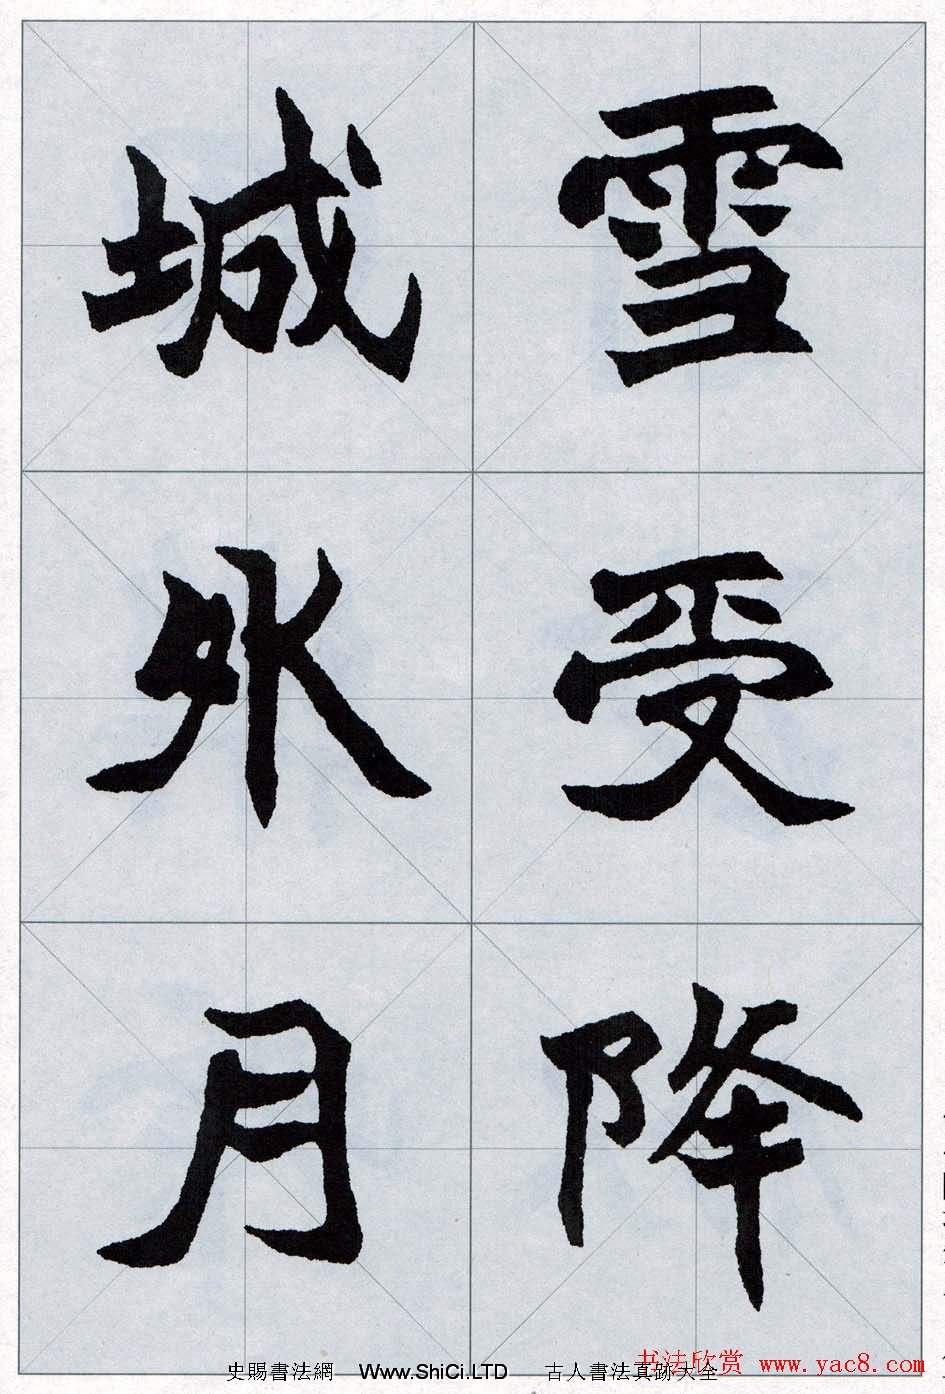 雪受降
城外月
书法欣赏 www.yac8.com
史賜書法網 Www.ShiCi.LTD 古人書法真跡大全